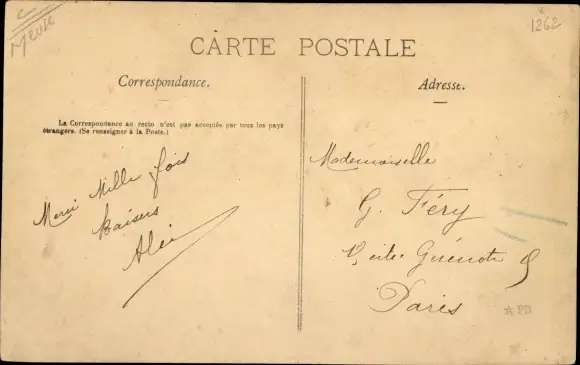 Meuse
1262
CARTE POSTALE
Correspondance.
Adresse.
La Correspondance au recto n'est pas acceptée par tous les pays
étrangers. (Se renseigner à la Poste.)
Merci Mille fois
Baisers
Mademoiselle
G. Féry
Cité Guénot 9
Paris